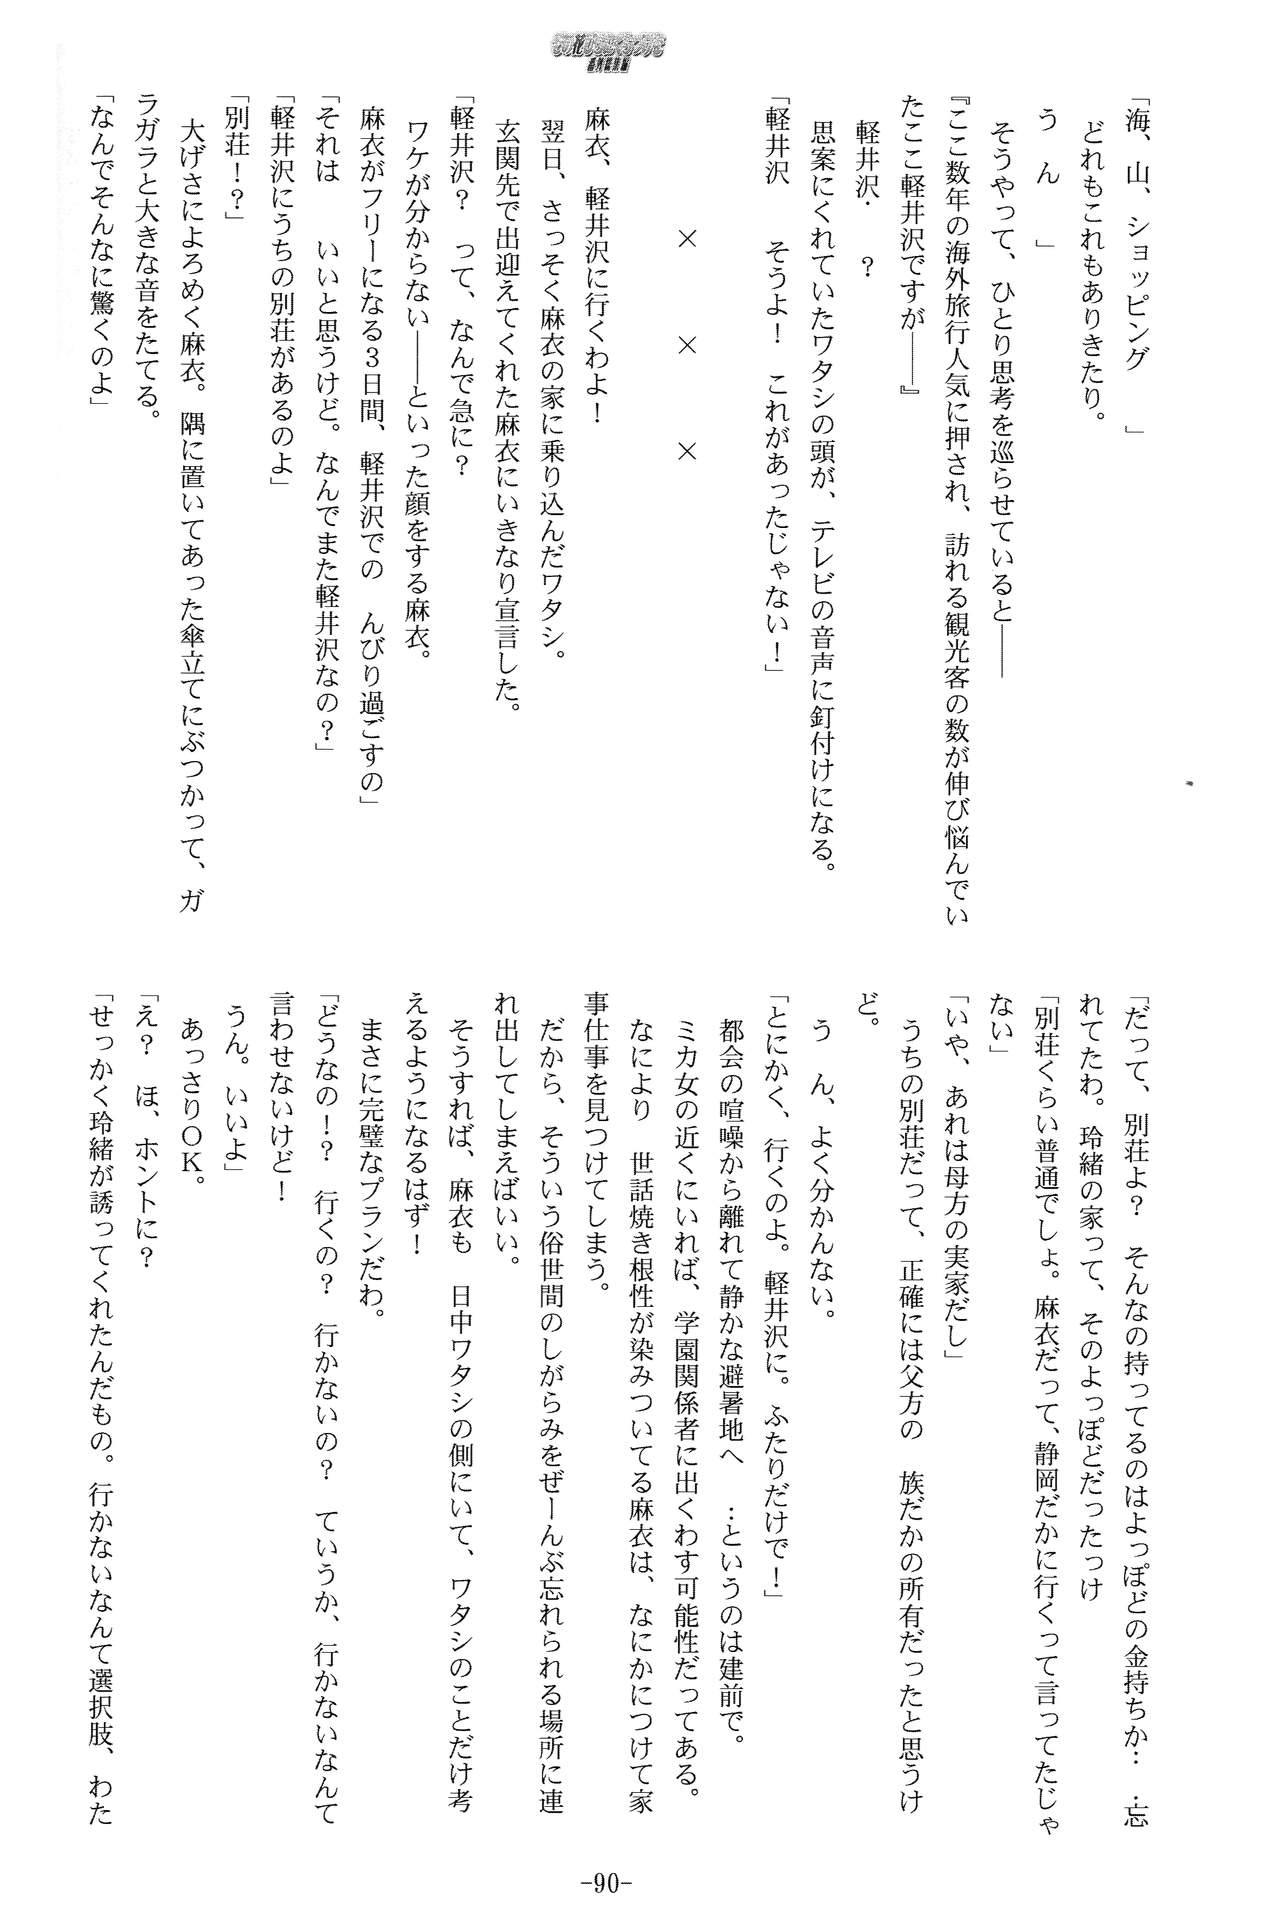 「海、山、ショッピング　　」
どれもこれもありきたり。
う　ん　　」
そうやって、ひとり思考を巡らせていると――
『ここ数年の海外旅行人気に押され、訪れる観光客の数が伸び悩んでい
たここ軽井沢ですが――』
軽井沢・　？
思案にくれていたワタシの頭が、テレビの音声に釘付けになる。
「軽井沢　　そうよ！　これがあったじゃない！」
×　×　×
麻衣、軽井沢に行くわよ！
翌日、さっそく麻衣の家に乗り込んだワタシ。
玄関先で出迎えてくれた麻衣にいきなり宣言した。
「軽井沢？　って、なんで急に？
ワケが分からない――といった顔をする麻衣。
麻衣がフリーになる３日間、軽井沢での　んびり過ごすの」
「それは　　いいと思うけど。なんでまた軽井沢なの？」
「軽井沢にうちの別荘があるのよ」
「別荘！？」
大げさによろめく麻衣。隅に置いてあった傘立てにぶつかって、ガ
ラガラと大きな音をたてる。
「なんでそんなに驚くのよ」
「だって、別荘よ？　そんなの持ってるのはよっぽどの金持ちか…　…忘
れてたわ。玲緒の家って、そのよっぽどだったっけ
「別荘くらい普通でしょ。麻衣だって、静岡だかに行くって言ってたじゃ
ない」
「いや、あれは母方の実家だし」
うちの別荘だって、正確には父方の　族だかの所有だったと思うけ
ど。
う　ん、よく分かんない。
「とにかく、行くのよ。軽井沢に。ふたりだけで！」
都会の喧噪から離れて静かな避暑地へ　…というのは建前で。
ミカ女の近くにいれば、学園関係者に出くわす可能性だってある。
なにより　世話焼き根性が染みついてる麻衣は、なにかにつけて家
事仕事を見つけてしまう。
だから、そういう俗世間のしがらみをぜーんぶ忘れられる場所に連
れ出してしまえばいい。
そうすれば、麻衣も　日中ワタシの側にいて、ワタシのことだけ考
えるようになるはず！
まさに完璧なプランだわ。
「どうなの！？　行くの？　行かないの？　ていうか、行かないなんて
言わせないけど！
うん。いいよ」
あっさりＯＫ。
「え？　ほ、ホントに？
「せっかく玲緒が誘ってくれたんだもの。行かないなんて選択肢、わた
-90-